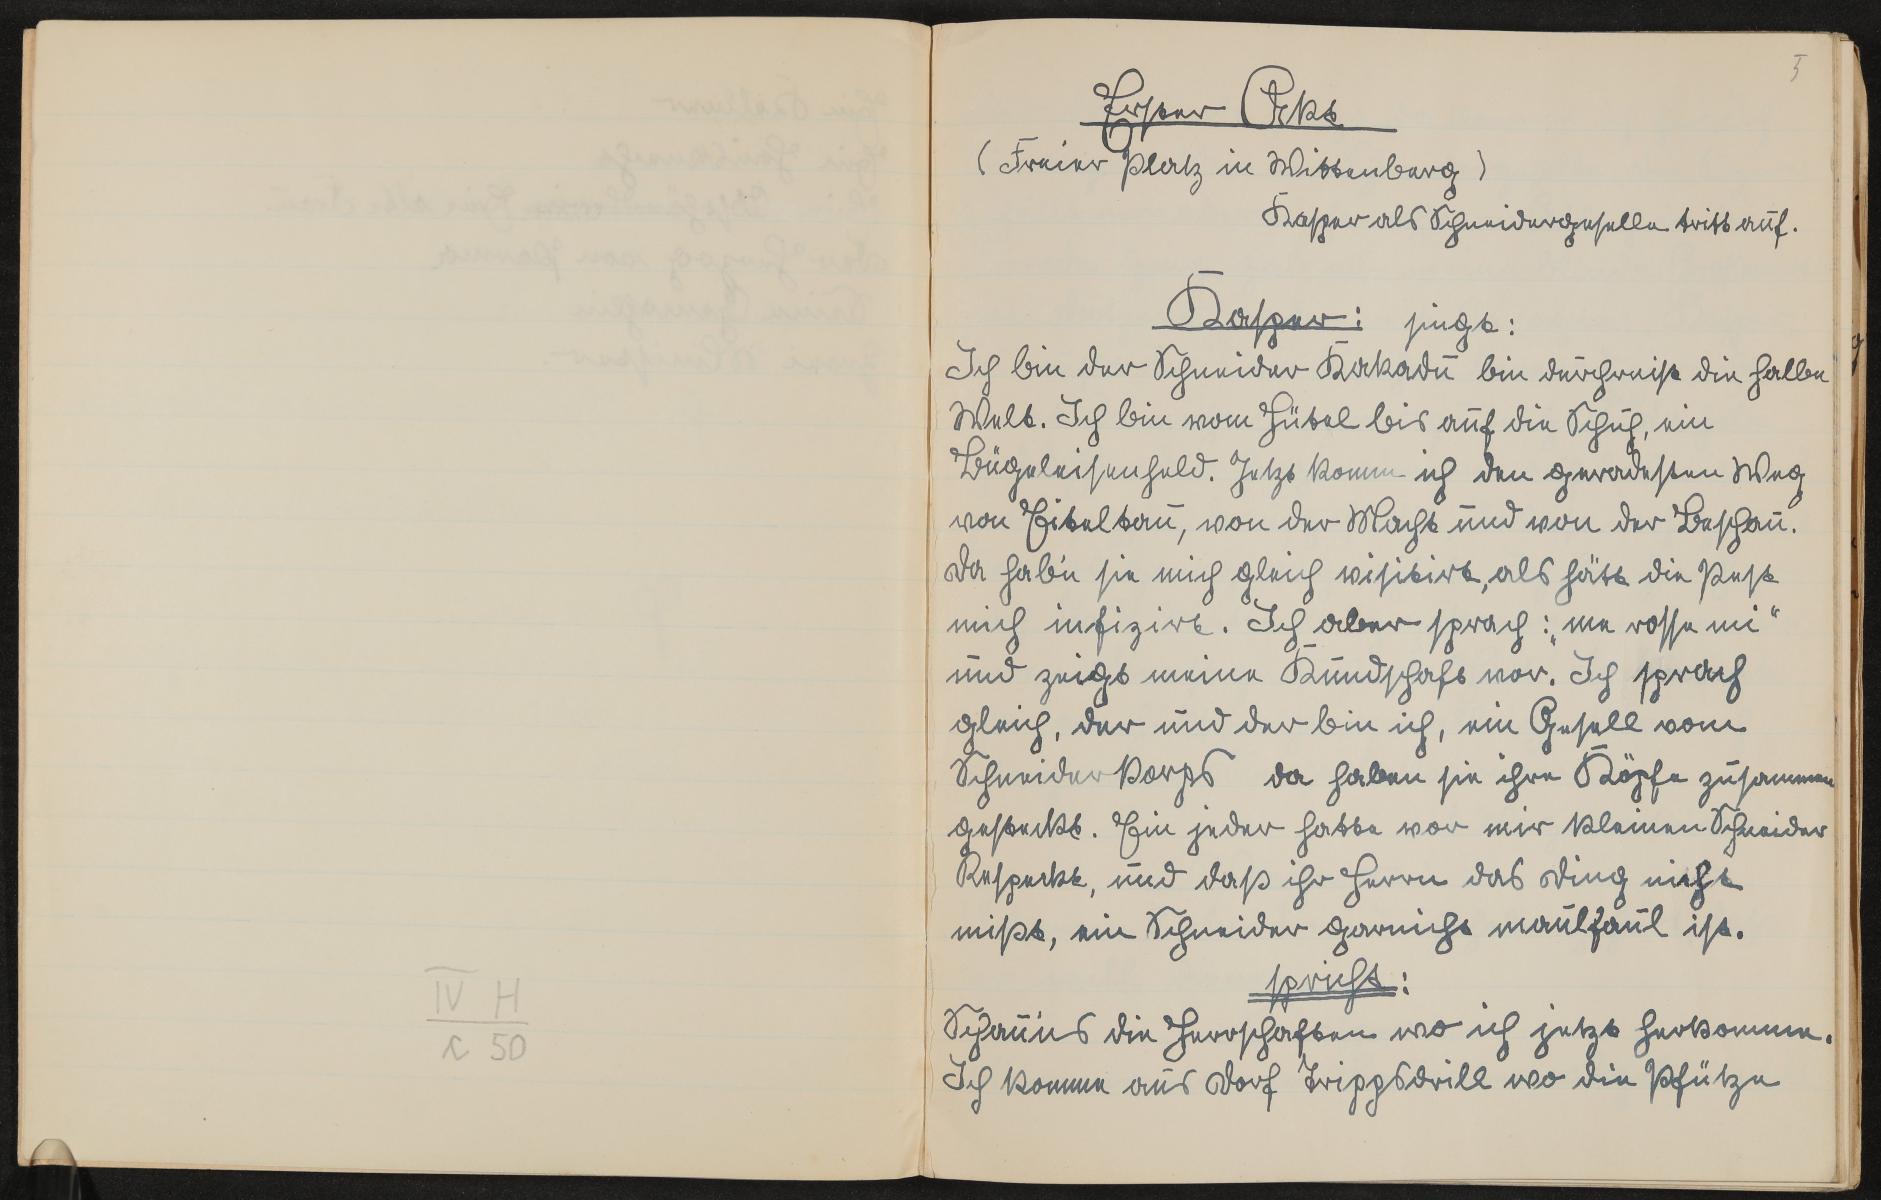 IV H
c 50
5
Erster Ackt
(Freier Platz in Wittenberg)
Kasper als Schneidergeselle tritt auf.
Kasper: singt:
Ich bin der Schneider Kakadu bin durchreist die halbe
Welt. Ich bin vom Hütel bis auf die Schuh, ein
Bügeleisenheld. Jetzt komm ich den geradesten Weg
von Eiteltau, von der Macht und von der Beschau.
Da hab'n sie mich gleich visitirt, als hätt die Pest
mich infizirt. Ich aber sprach: „me rosse mi“
und zeigt meine Kundschaft vor. Ich sprach
gleich, der und der bin ich, ein Gesell vom
Schneiderkorps da haben sie ihre Köpfe zusammen
gesteckt. Ein jeder hatte vor mir kleinen Schneider
Respeckt, und daß ihr Herrn das Ding nicht
mißt, ein Schneider garnicht maulfaul ist.
spricht:
Schau'ns die Herrschaften wo ich jetzt herkomme.
Ich komme aus Dorf Trippsdrill wo die Pfütze